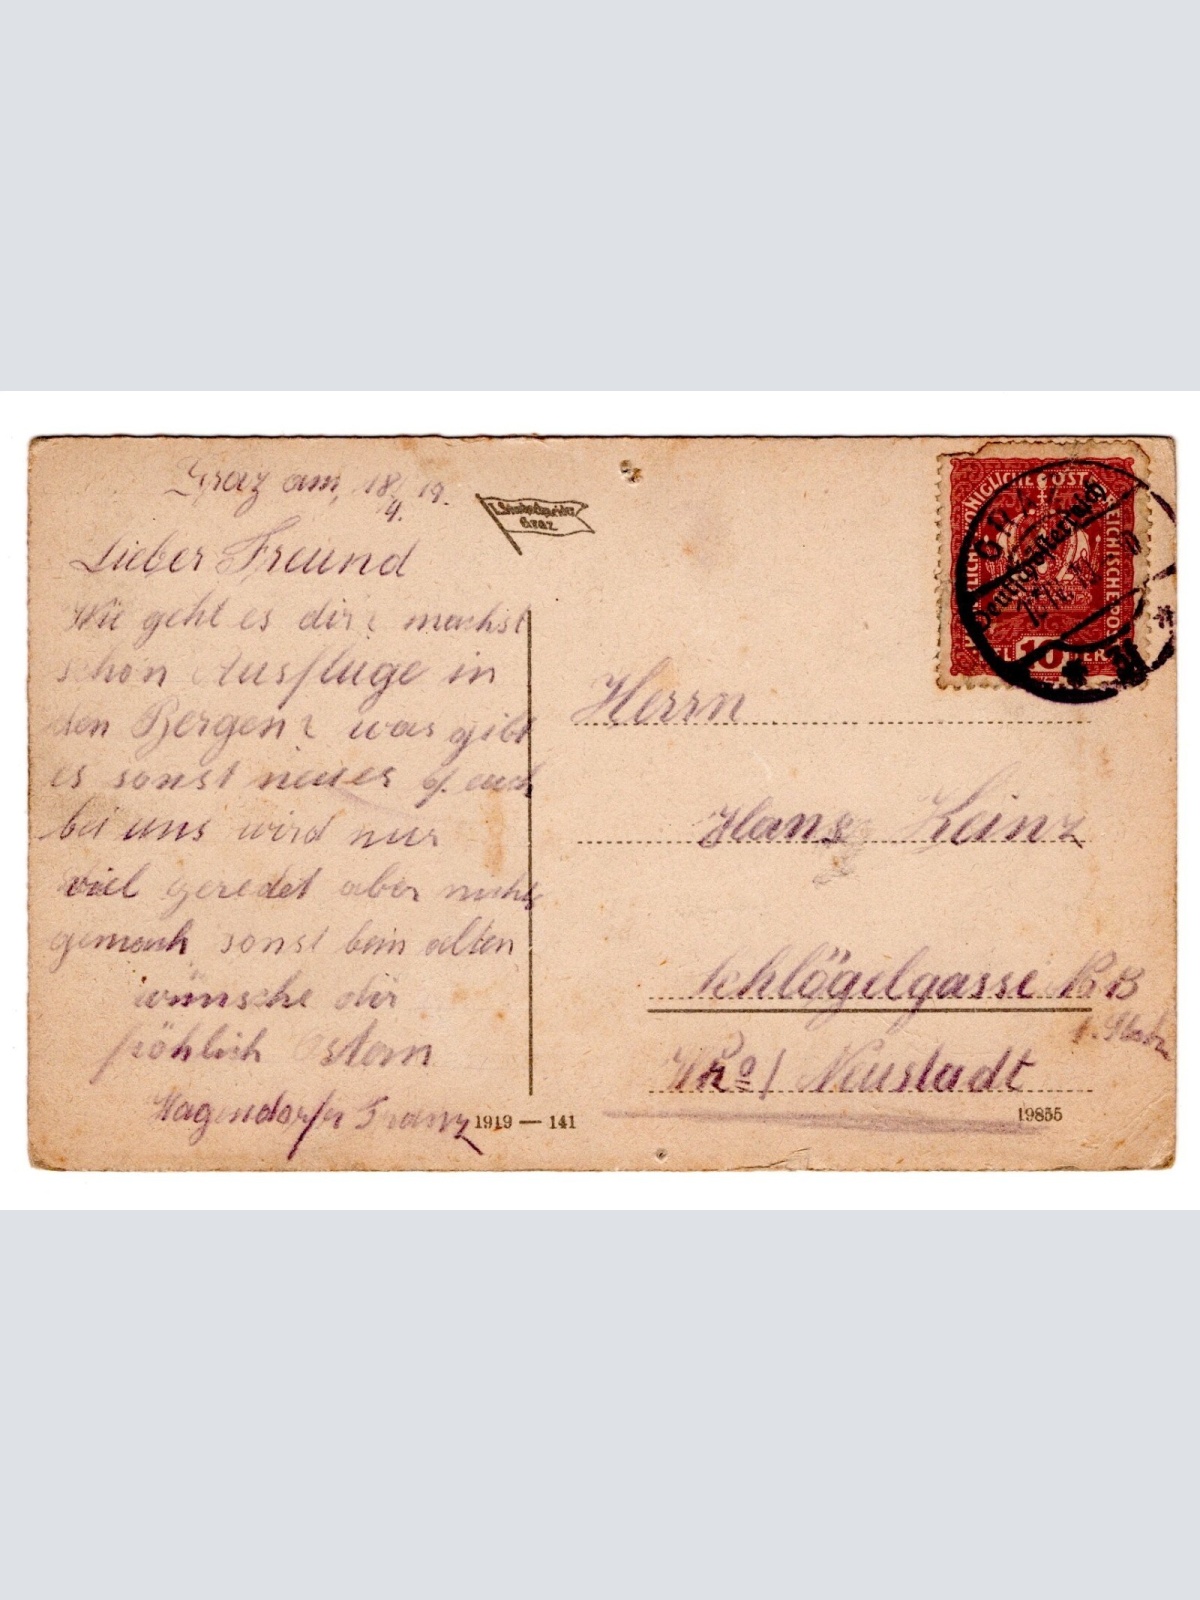 Graz am 18/4. 19.
Lieber Freund
Wie geht es dir? machst
schon Ausfluge in
den Bergen? was gibt
es sonst neues
bei uns wird nur
viel geredet aber nichts
gemach sonst beim alten
wünsche dir
fröhlich Ostern
Wagendorfer Franz
Graz
1919 — 141
KAISERLICHE KÖNIGLICHE ÖSTERREICHISCHE POST
Deutschösterreich
10
GRAZ
Herrn
Hans Heinz
Schlögelgasse
Neustadt
19855